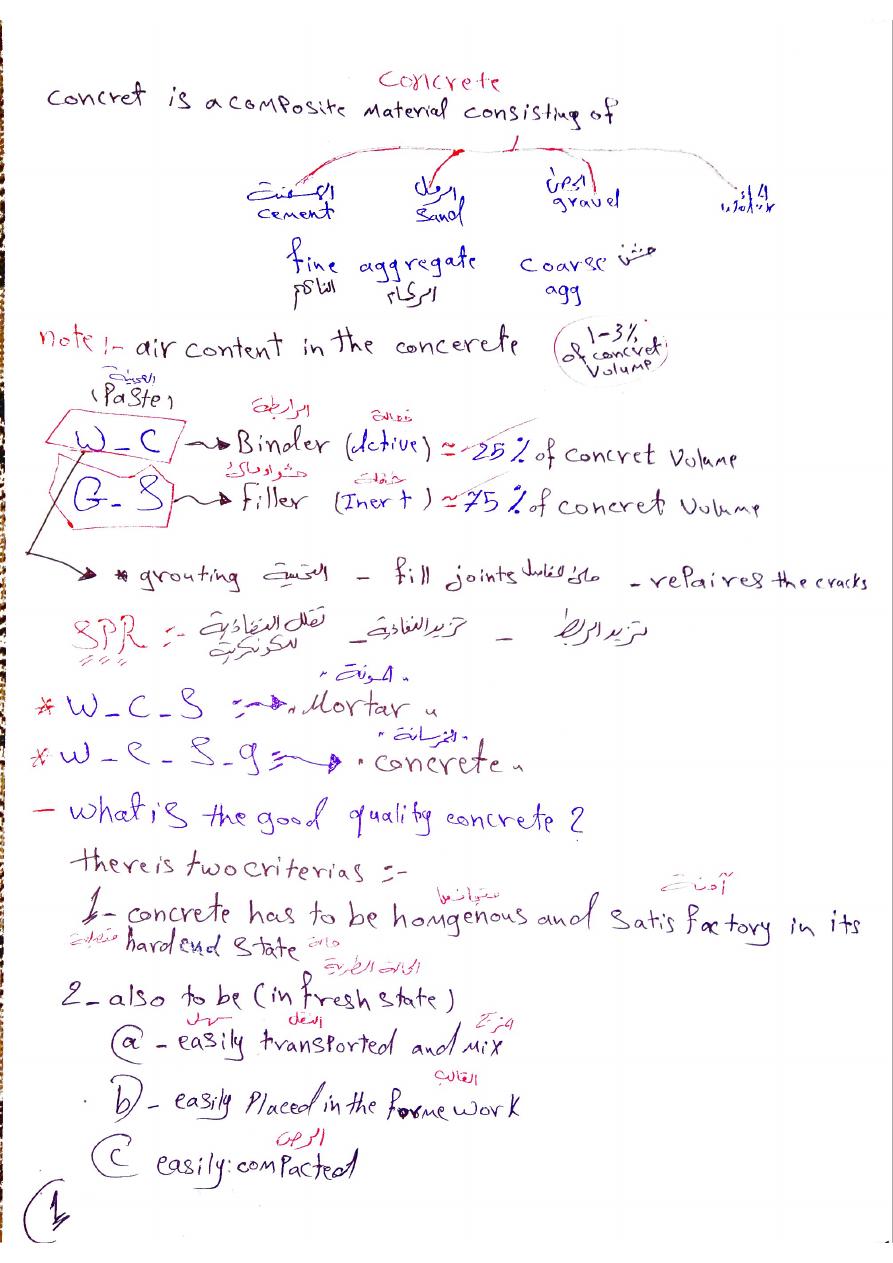 Concrete
Concret is a composite material consisting of
السمنت الرمل الحصى الماء
cement sand gravel water
fine aggregate coarse خشن
الناعم الركام agg
note :- air content in the concerete (1-3% of concret volume)
العجينة
(Paste) الرابطة فعالة
W - C → Binder (Active) ≈ 25 % of concret volume
G - S → Filler (Inert) ≈ 75 % of concret volume
* grouting التحشية - fill joints - repaires the cracks
SPR :- تقلل النفاذية للكونكريت - تزيد النفاذية - تزيد الربط
"المونة"
* W - C - S :→ "Mortar"
"الخرسانة"
* W - c - S - g → "concrete"
- what is the good quality concrete ?
there is two criterias :-
آمنة
1- concrete has to be homgenous and satisfactory in its
hardend state حالة
الحالة الطرية
2 - also to be (in fresh state)
سهل النقل مزج
(a) - easily transported and mix
القالب
b) - easily placed in the forme work
الرص
(c easily: compacted
1